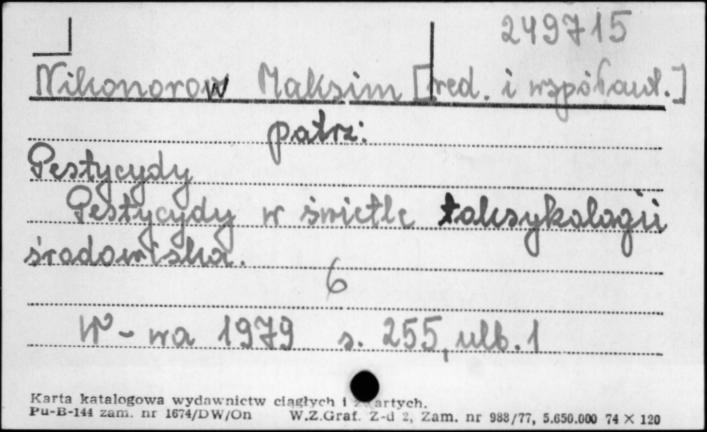 249715
Nikonorow Maksim [red. i współaut.]
patrz:
Pestycydy
Pestycydy w świetle toksykologii
środowiska.
6
W-wa 1979 s. 255, ulb. 1
Karta katalogowa wydawnictw ciągłych i zwartych.
Pu-B-144 zam. nr 1674/DW/On W.Z.Graf. Z-d 2, Zam. nr 988/77, 5.650.000 74 × 120